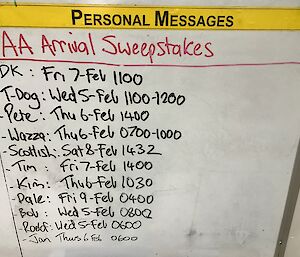 PERSONAL MESSAGES
AA Arrival Sweepstakes
DK: Fri 7-Feb 1100
T-Dog: Wed 5-Feb 1100-1200
-Pete: Thu 6-Feb 1400
-Wazza: Thu 6-Feb 0700-1000
-Scottish: Sat 8-Feb 1432
-Tim: Fri 7-Feb 1400
-Kim: Thu 6-Feb 1030
Dale: Fri 9-Feb 0400
Bob: Wed 5-Feb 0800
Wed 5-Feb 0600
-Jan Thurs 6 Feb 0600